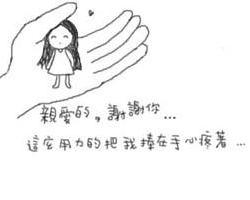 親愛的，謝謝你...
這麼用力的把我捧在手心疼著...